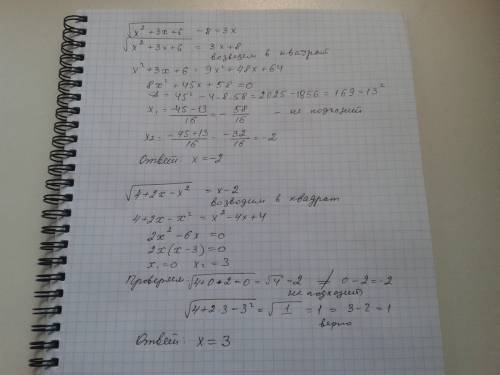 √(x² + 3x + 6) - 8 = 3x
√(x² + 3x + 6) = 3x + 8
возводим в квадрат
x² + 3x + 6 = 9x² + 48x + 64
8x² + 45x + 58 = 0
D = 45² - 4·8·58 = 2025 - 1856 = 169 = 13²
x₁ = (-45-13)/16 = -58/16 - не подходит
x₂ = (-45+13)/16 = -32/16 = -2
Ответ: x = -2
√(4+2x-x²) = x-2
возводим в квадрат
4+2x-x² = x²-4x+4
2x²-6x = 0
2x(x-3)=0
x₁=0 x₂=3
Проверяем √(4+0+2·0) = √4 = 2 ≠ 0-2=-2
не подходит
√(4+2·3-3²) = √1 = 1 = 3-2 = 1
верно
Ответ: x = 3